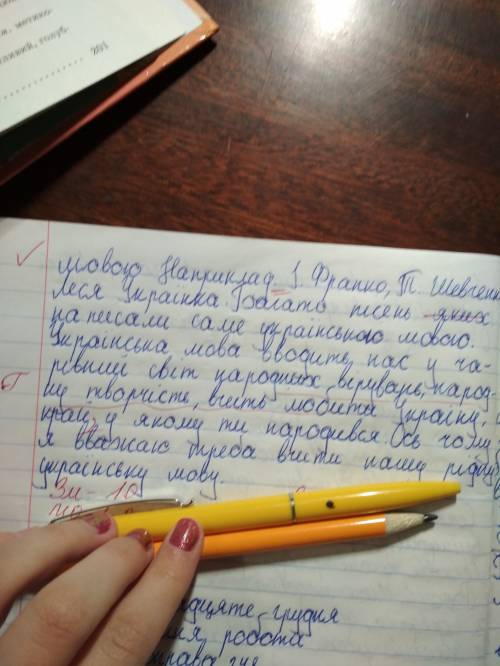 201
мовою Наприклад І. Франко, Т. Шевченк
Леся Українка. Багато пісень яких
написали саме українською мовою.
Українська мова вводить нас у ча-
рівний світ народних вірувань, народ-
ну творчість, вчить любити Україну,
край, у якому ти народився. Ось чому
я вважаю треба вчити нашу рідну
українську мову.
Зм - 10
дцяте грудня
робота